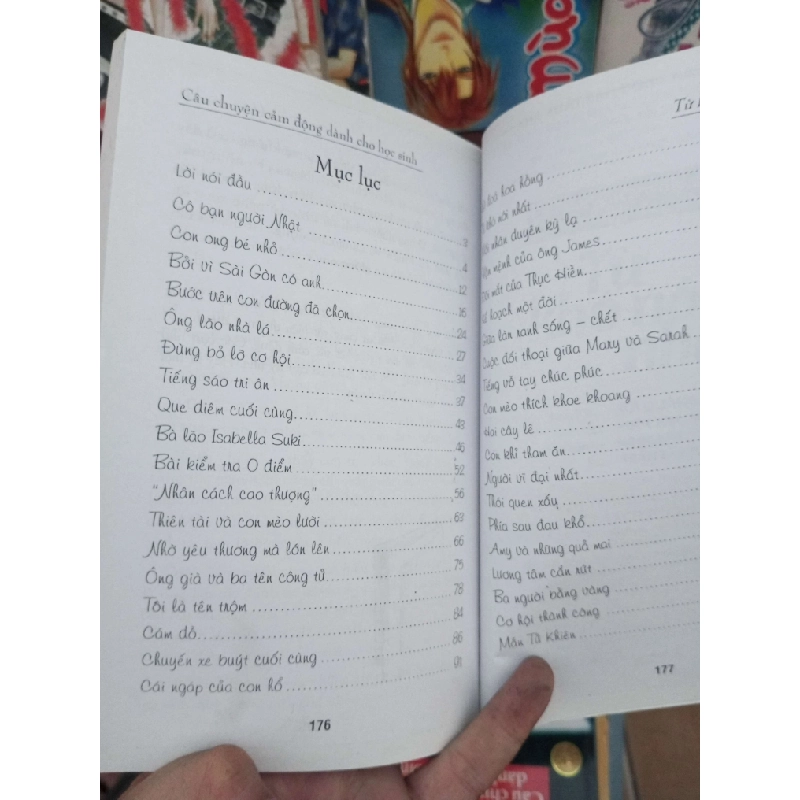 Câu chuyện cảm động dành cho học sinh
Mục lục
Lời nói đầu 3
Cô bạn người Nhật 4
Con ong bé nhỏ 12
Bởi vì Sài Gòn có anh 16
Bước trên con đường đã chọn 24
Ông lão nhà lá 27
Đừng bỏ lỡ cơ hội 34
Tiếng sáo tri ân 37
Que diêm cuối cùng 43
Bà lão Isabella Suki 46
Bài kiểm tra 0 điểm 52
“Nhân cách cao thượng” 56
Thiên tài và con mèo lười 63
Nhờ yêu thương mà lớn lên 66
Ông già và ba tên công tử 75
Tôi là tên trộm 78
Cám dỗ 84
Chuyến xe buýt cuối cùng 86
Cái ngáp của con hổ 91
176
Từ
hoa hồng
nhất
nhân duyên kỳ lạ
mệnh của ông James
mắt của Thục Hiền
hoạch một đời
lằn ranh sống – chết
Cuộc đối thoại giữa Mary và Sarah
Tiếng vỗ tay chúc phúc
Con mèo thích khoe khoang
cây lê
Con khỉ tham ăn
Người vĩ đại nhất
Thói quen xấu
Phía sau đau khổ
Amy và những quả mai
Lương tâm cắn rứt
Ba người bằng vàng
Cơ hội thành công
Mân Tử Khiên
177
mùa